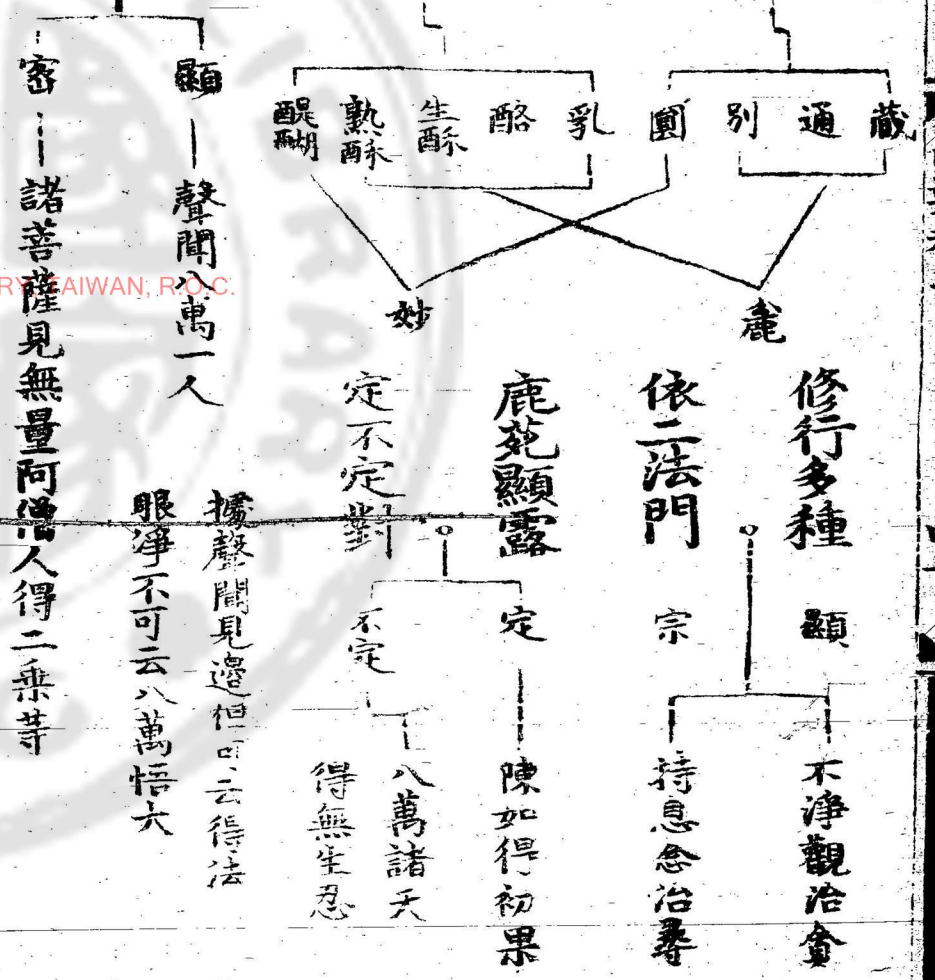 藏
通
別
圓
乳
酪
生酥
熟酥
醍醐
麁
妙
修行多種
顯
不淨觀治貪
依二法門
宗
持息念治尋
鹿苑顯露
定
陳如得初果
定不定對
不定
八萬諸天
得無生忍
顯
聲聞八萬一人
據聲聞見邊但可云得法
眼淨不可云八萬悟大
密
諸菩薩見無量阿僧人得二乘等
TAIWAN, R.O.C.